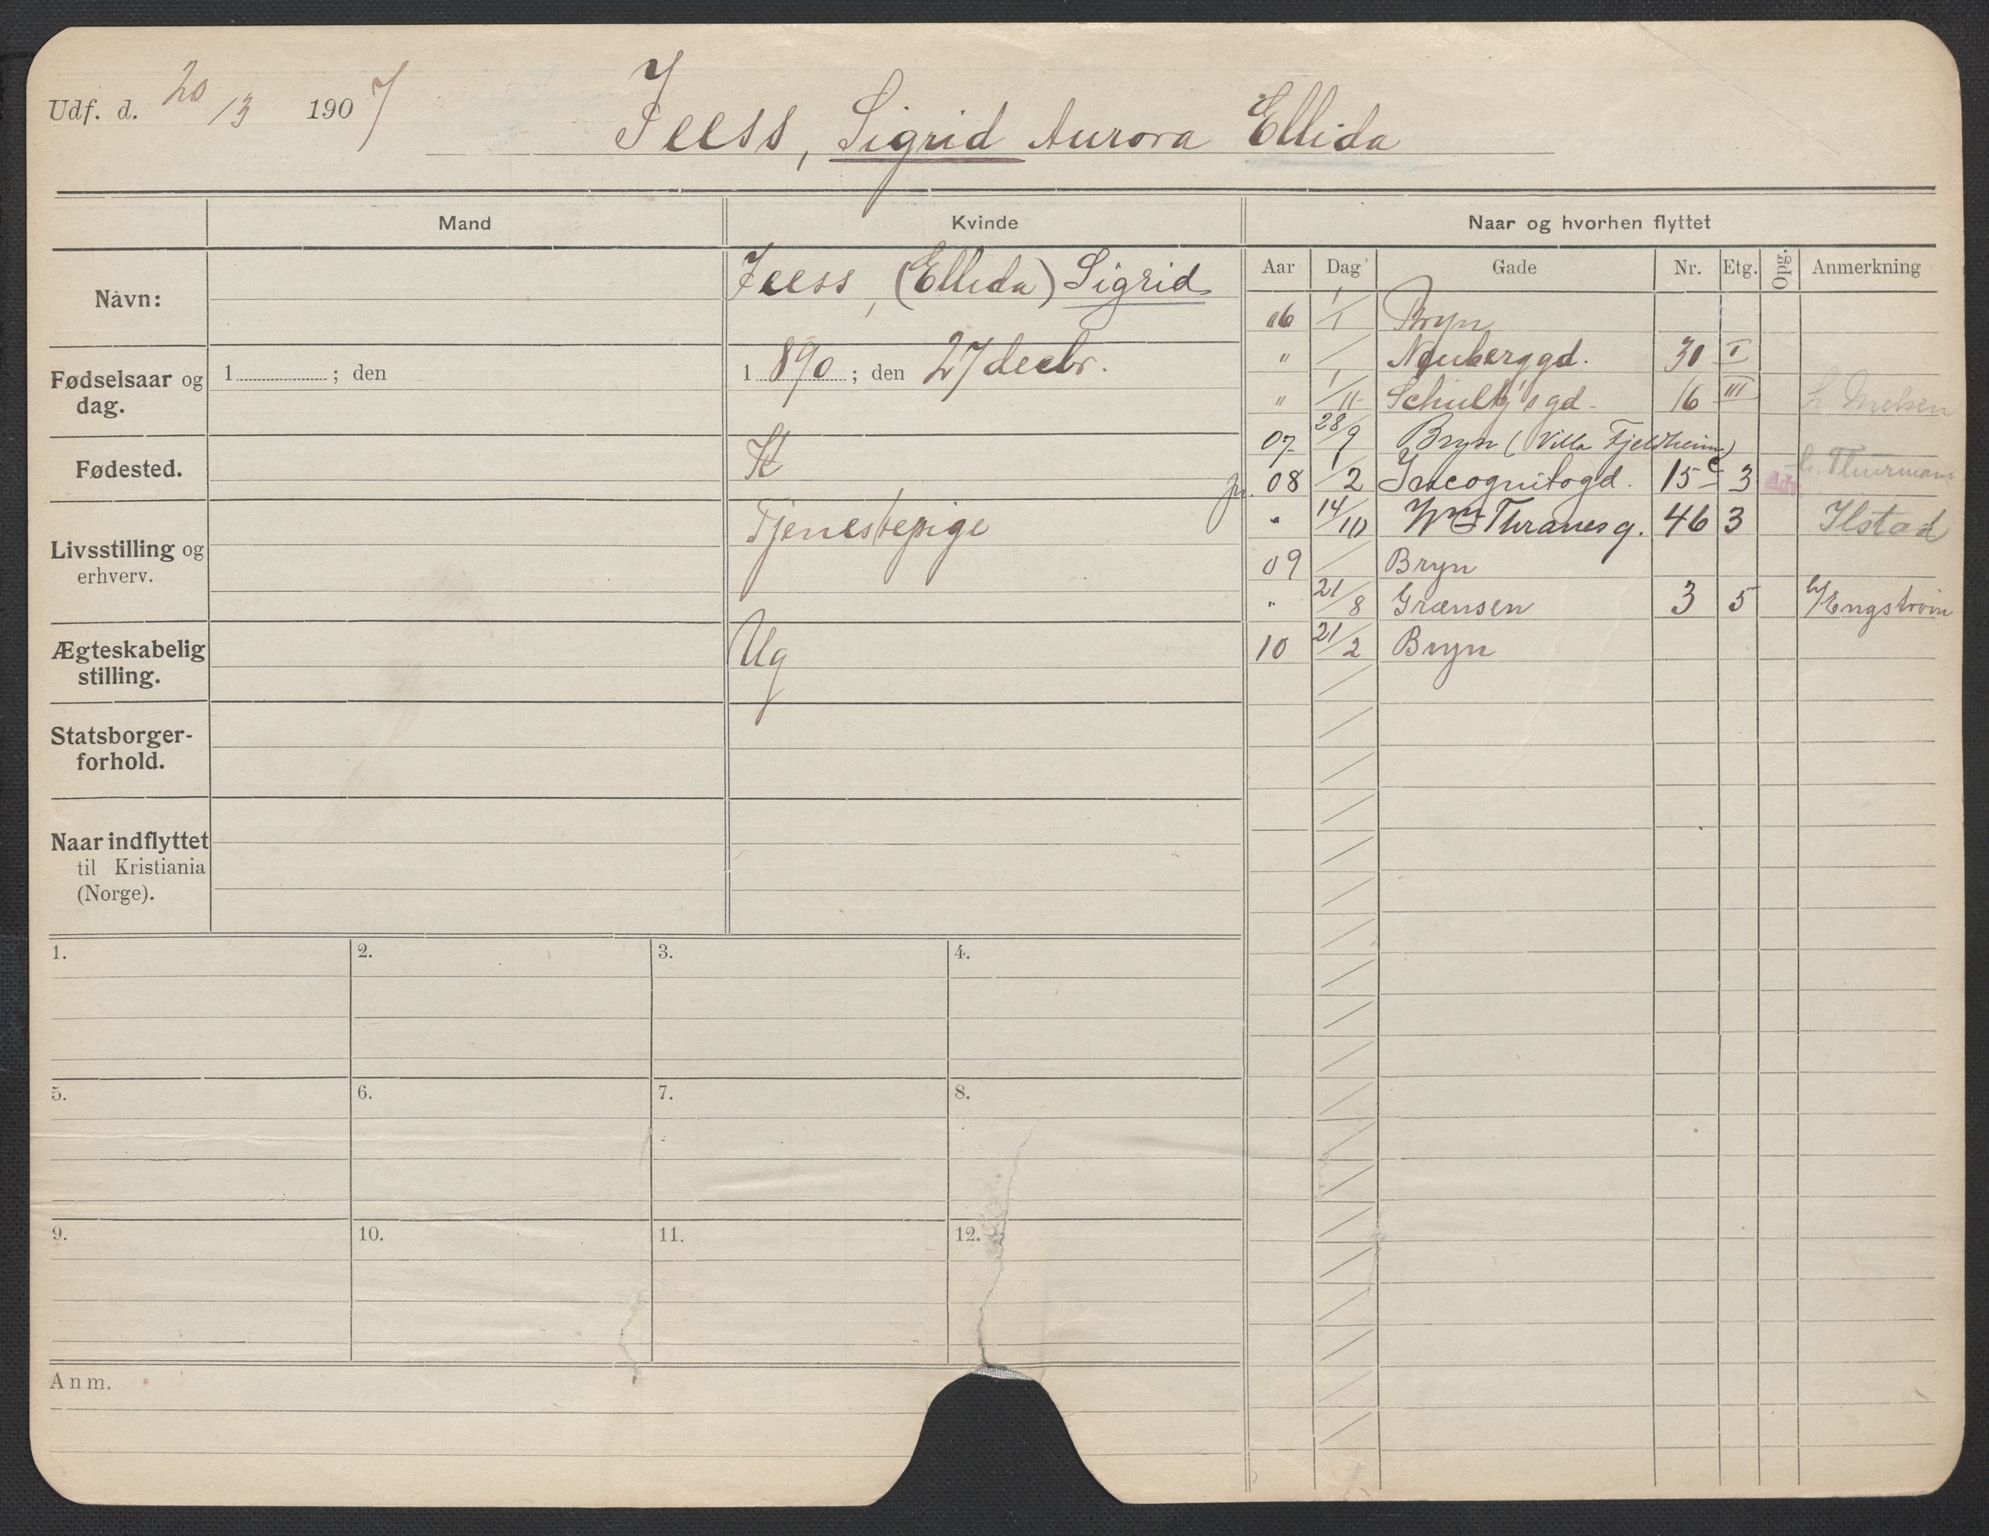 Udf. d. 20/3 1907 Feess, Sigrid Aurora Ellida
Mand Kvinde Naar og hvorhen flyttet
Aar Dag Gade Nr. Etg. Opg. Anmerkning
Navn: Feess, (Ellida) Sigrid
Fødselsaar og dag. 1 ; den 1 890 ; den 27 decbr.
Fødested. K
Livsstilling og erhverv. Tjenestepige
Ægteskabelig stilling. Ug
Statsborger-forhold.
Naar indflyttet til Kristiania (Norge).
06 1/1 Bryn
" / Neuberggd. 30 I
" 1/11 Schultz's gd. 16 III
07 28/9 Bryn (Villa Fjeldheim)
08 1/2 Incognitogd. 15 c 3
" 14/10 Wm Thranesg. 46 3 Ilstad
09 / Bryn
" 21/8 Grænsen 3 5 h/Engstrøm
10 21/2 Bryn
1. 2. 3. 4.
5. 6. 7. 8.
9. 10. 11. 12.
Anm.